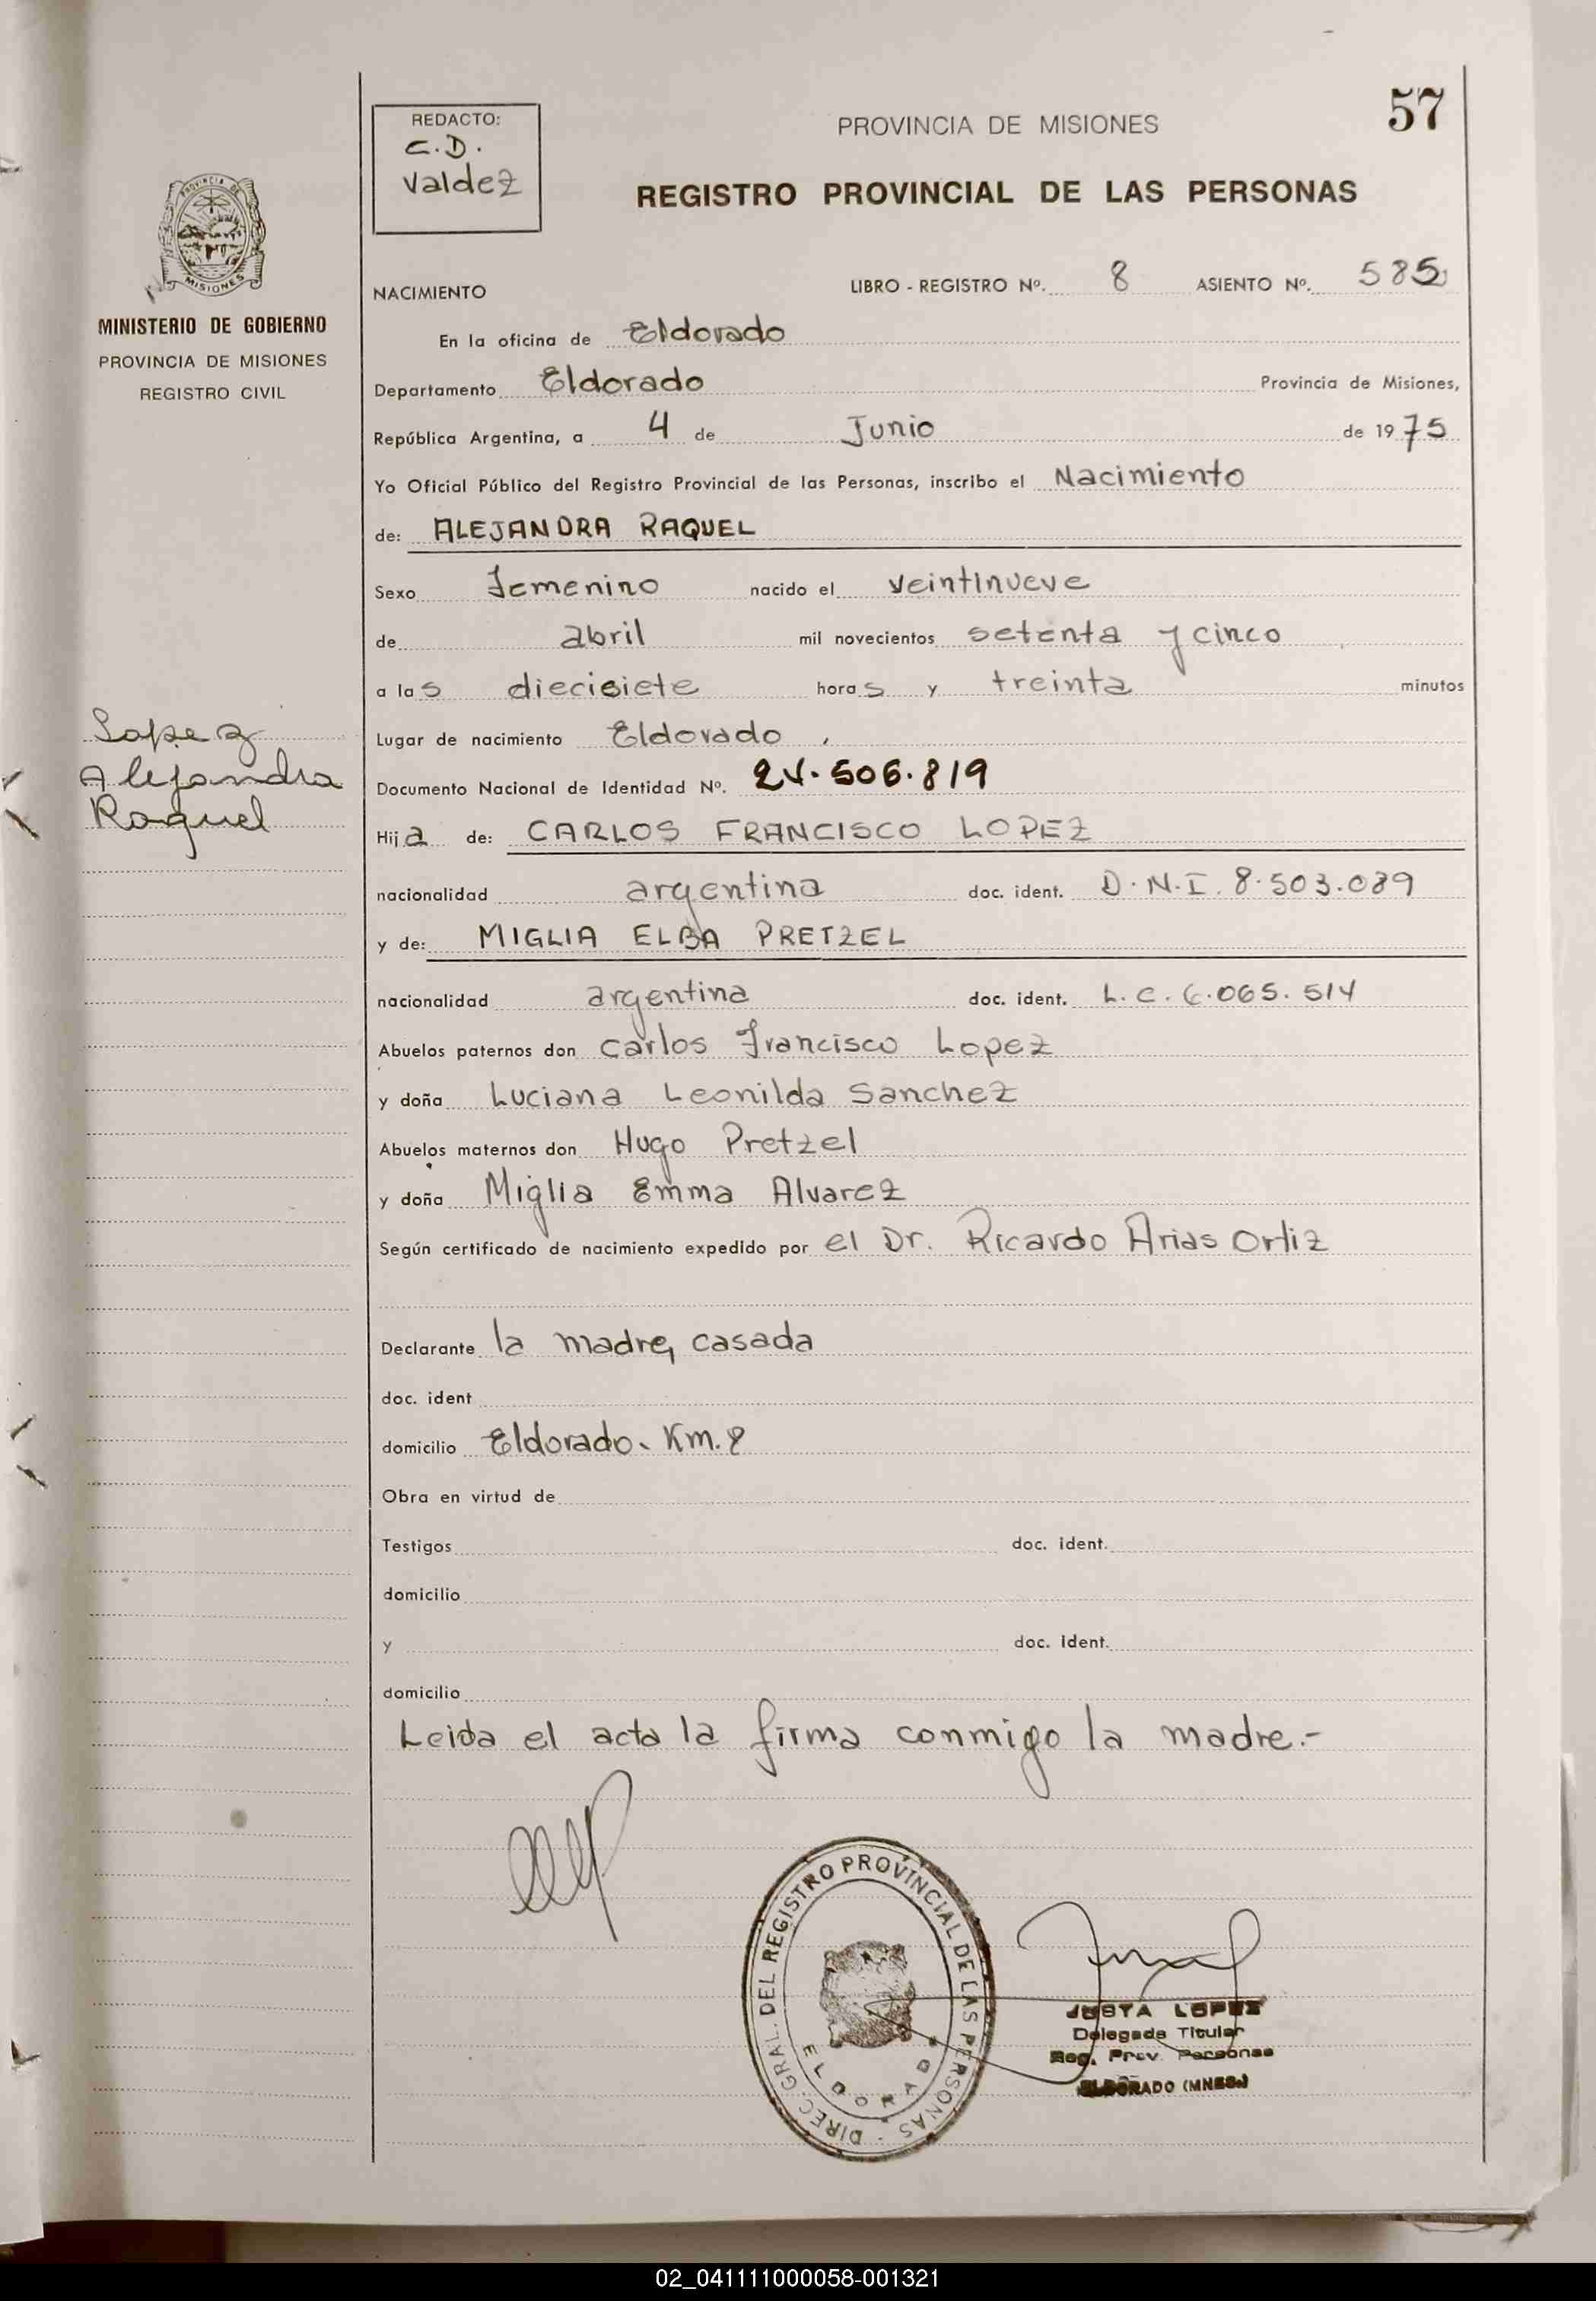 57
REDACTO:
C.D.
Valdez
PROVINCIA DE MISIONES
REGISTRO PROVINCIAL DE LAS PERSONAS
PROVINCIA DE
MISIONES
MINISTERIO DE GOBIERNO
PROVINCIA DE MISIONES
REGISTRO CIVIL
NACIMIENTO LIBRO - REGISTRO Nº. 8 ASIENTO Nº. 585
En la oficina de Eldorado
Departamento Eldorado Provincia de Misiones,
República Argentina, a 4 de Junio de 1975
Yo Oficial Público del Registro Provincial de las Personas, inscribo el Nacimiento
de: ALEJANDRA RAQUEL
Sexo Femenino nacido el veintinueve
de abril mil novecientos setenta y cinco
a las diecisiete horas y treinta minutos
Lopez
Alejandra
Raquel
Lugar de nacimiento Eldorado,
Documento Nacional de Identidad Nº. 24.506.819
Hija de: CARLOS FRANCISCO LOPEZ
nacionalidad argentina doc. ident. D.N.I. 8.503.089
y de: MIGLIA ELBA PRETZEL
nacionalidad argentina doc. ident. L.C. 6.065.514
Abuelos paternos don Carlos Francisco Lopez
y doña Luciana Leonilda Sanchez
Abuelos maternos don Hugo Pretzel
y doña Miglia Emma Alvarez
Según certificado de nacimiento expedido por el Dr. Ricardo Arias Ortiz
Declarante la madre, casada
doc. ident
domicilio Eldorado. Km.
Obra en virtud de
Testigos doc. ident.
domicilio
y doc. ident.
domicilio
Leida el acta la firma conmigo la madre.-
DIREC. GRAL. DEL REGISTRO PROVINCIAL DE LAS PERSONAS -
ELDORADO
JUSTA LOPEZ
Delegada Titular
Reg. Prov. Personas
ELDORADO (MNES.)
02_041111000058-001321